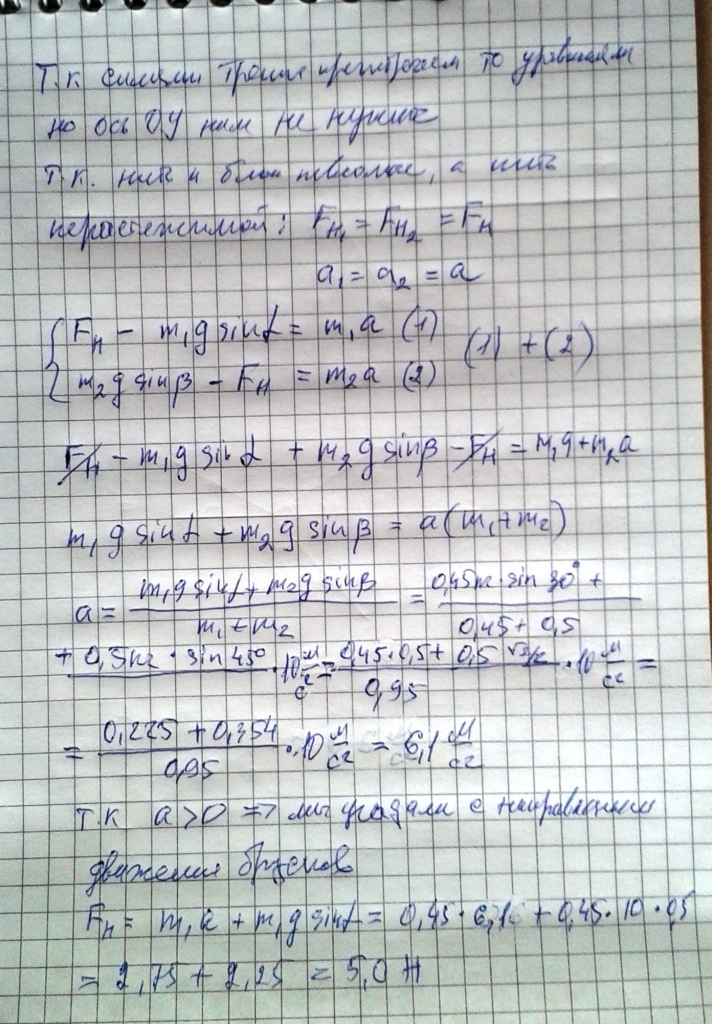 Т.к силами трения пренебрегаем то уравнения
на ось ОУ нам не нужна
т.к. нить и блок невесомые, а нить
нерастяжимой: Fн₁ = Fн₂ = Fн
a₁ = a₂ = a
{ Fн - m₁g sinα = m₁a (1)
m₂g sinβ - Fн = m₂a (2) (1) + (2)
Fн - m₁g sinα + m₂g sinβ - Fн = m₁g + m₂a
m₁g sinα + m₂g sinβ = a(m₁ + m₂)
a = (m₁g sinα + m₂g sinβ)/(m₁ + m₂) = (0,45кг·sin 30° +)/(0,45 + 0,5)
+ 0,5кг · sin 45° · 10 м/с² = (0,45·0,5 + 0,5 √2/2)/0,95 · 10 м/с² =
= (0,225 + 0,354)/0,95 · 10 м/с² = 6,1 м/с²
т.к a>0 => мы угадали с направлением
движения брусков
Fн = m₁a + m₁g sinα = 0,45 · 6,1 + 0,45 · 10 · 0,5
= 2,75 + 2,25 = 5,0 Н